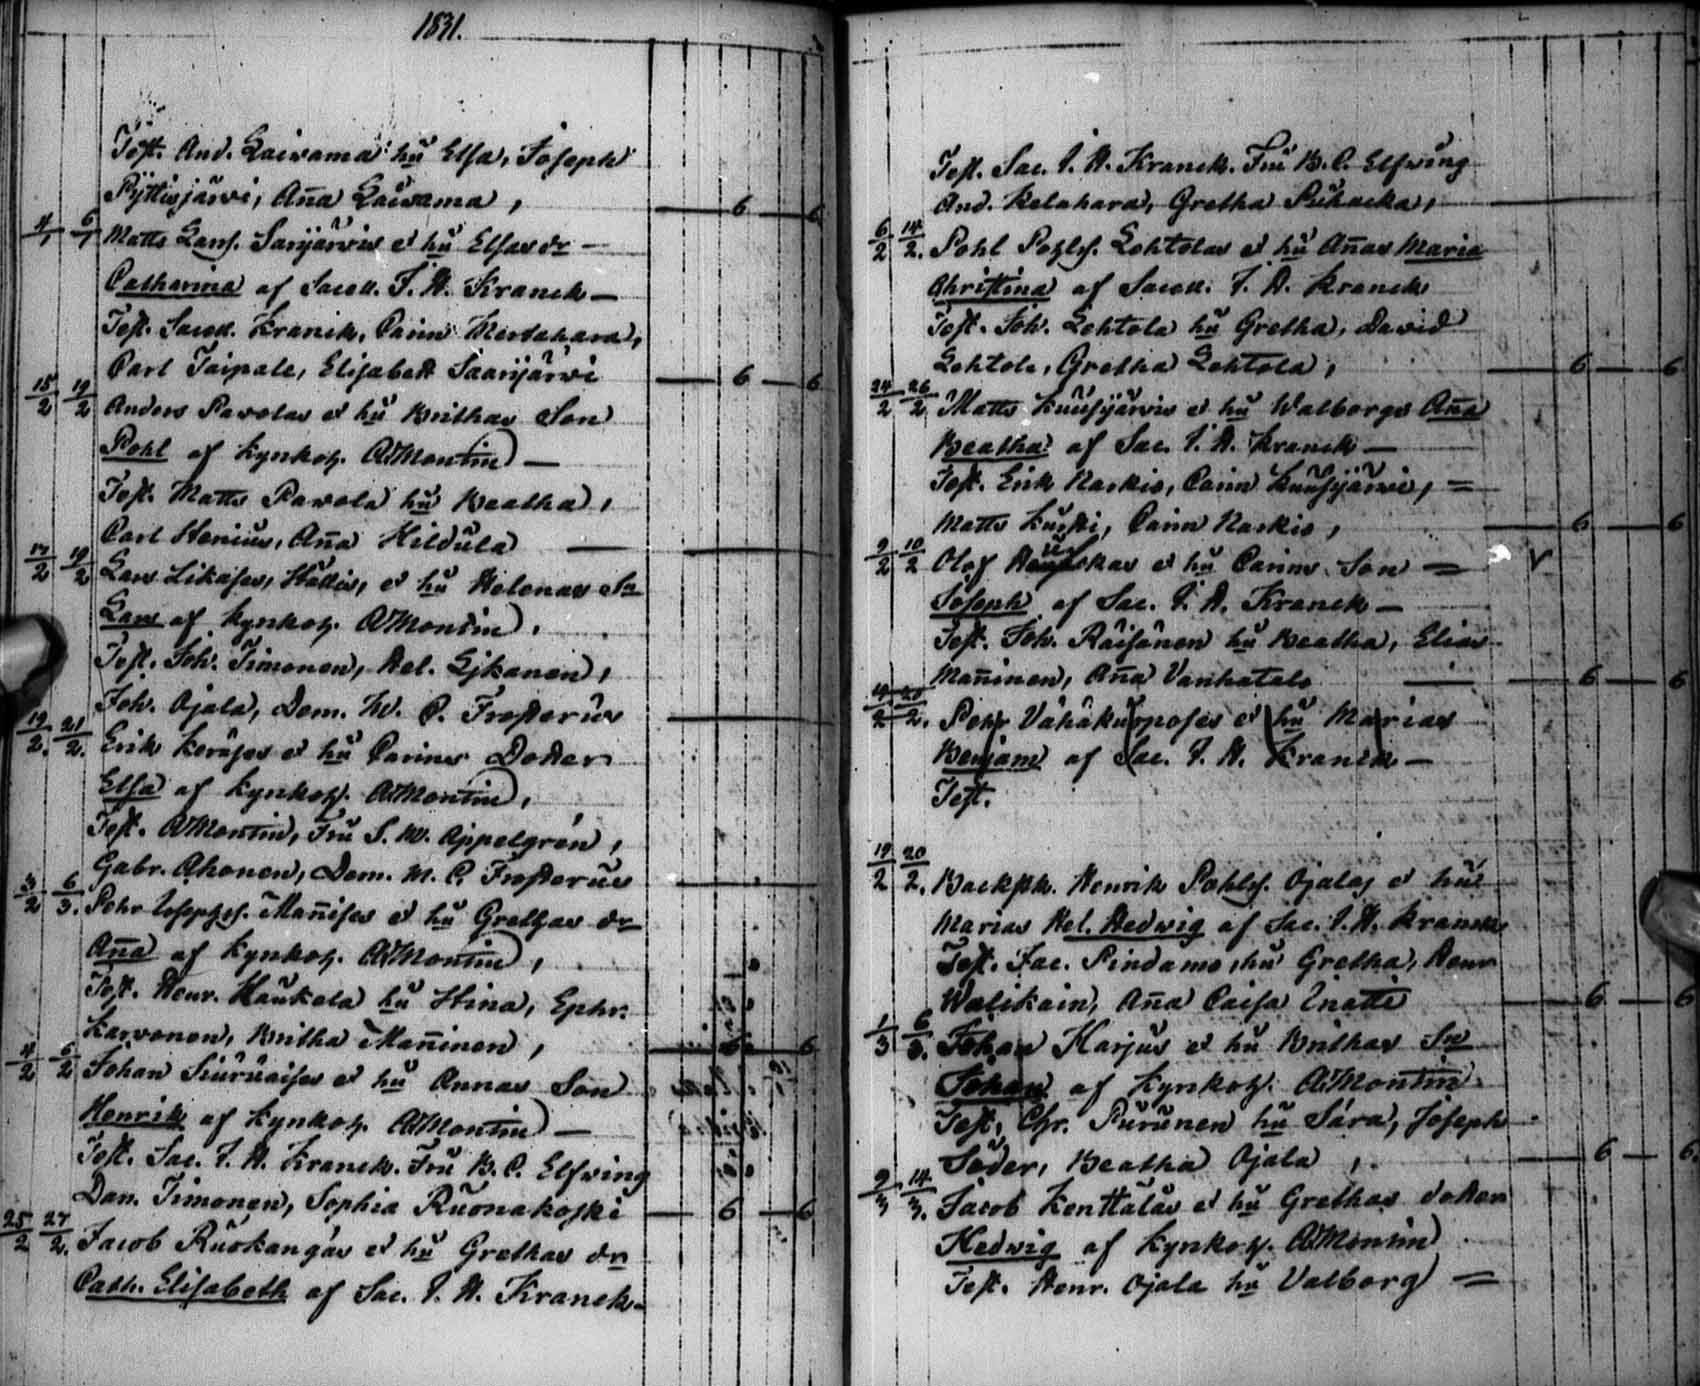 1831.
Test. And. Laivama hu Elsa, Joseph
Pyttisjärvi, Aña Laivama, — 6 — 6
4/1 6/1 Matts Lars. Saarijärvis et hu Elsas dr —
Catharina af Sacell. J. H. Kranck —
Test. Sacell. Kranck, Carin
Carl Taipale, Elisabeth Saarijärvi — 6 — 6
15/2 19/2 Anders Pavolas et hu Brithas Son
Pohl af Kynkoh. A Montin —
Test. Matts Pavola hu Beatha,
Carl Henius, Aña Hildula —
17/2 19/2 Lars et hu Helenas Sn
Lars af Kynkoh. A Montin,
Test. Joh. Timonen, Hel.
Joh. Ojala, Dem. W. C. Frosterus
19/2. 21/2. Erik Keräses et hu Carins Dotter
Elsa af Kynkoh. A Montin,
Test. A Montin, Fru S. W. Appelgrén,
Gabr. Ahonen, Dem. M. C. Frosterus
3/2 6/3. Pehr Josephss. Mañises et hu Grethas dr
Aña af Kynkoh. A Montin,
Test. Henr. Haukela hu Stina, Ephr.
Karvonen, Britha Mañinen, — 6 — 6
4/2 6/2 Johan et hu Annas Son
Henrik af Kynkoh. A Montin —
Test. Sac. J. H. Kranck. Fru B. C. Elfving
Dan. Timonen, Sophia Ruonakoski — 6 — 6
25/2 27/2. Jacob Ruokangas et hu Grethas dr
Cath. Elisabeth af Sac. J. H. Kranck.
Test. Sac. J. H. Kranck. Fru B. C. Elfving
And. Kelahara, Gretha Puhacka,
6/2 14/2. Pohl Pohls. Lehtolas et hu Añas Maria
Christina af Sacell. J. H. Kranck
Test. Joh. Lehtola hu Gretha, David
Lehtola, Gretha Lehtola, — 6 — 6
24/2 26/2 Matts Kuusijärvis et hu Walborgs Aña
Beatha af Sac. J. H. Kranck —
Test. Erik Narkio, Carin Kuusijärvi, =
Matts Kurki, Carin Narkio, — 6 — 6
9/2 10/2 Olof et hu Carins Son =
Joseph af Sac. J. H. Kranck —
Test. Joh. Räisänen hu Beatha, Elias
Mañinen, Aña Vanhatalo — 6 — 6
Pehr et hu Marias
Benjam af Sac. J. H. Kranck —
Test.
19/2 20/2. Backstk. Henrik Pohls. Ojalas et hu
Marias Hel. Hedvig af Sac. J. H. Kranck
Test. Jac. Pindamo, hu Gretha, Henr
Walikain, Aña Caisa — 6 — 6
1/3 6/3. Johan Karjus et hu Brithas Sn
Johan af Kynkoh. A Montin
Test. Chr. Purunen hu Sara, Joseph
Söder, Beatha Ojala, — 6 — 6.
9/3 14/3. Jacob Kenttälas et hu Grethas dotter
Hedvig af Kynkoh. A Montin
Test. Henr. Ojala hu Valborg =